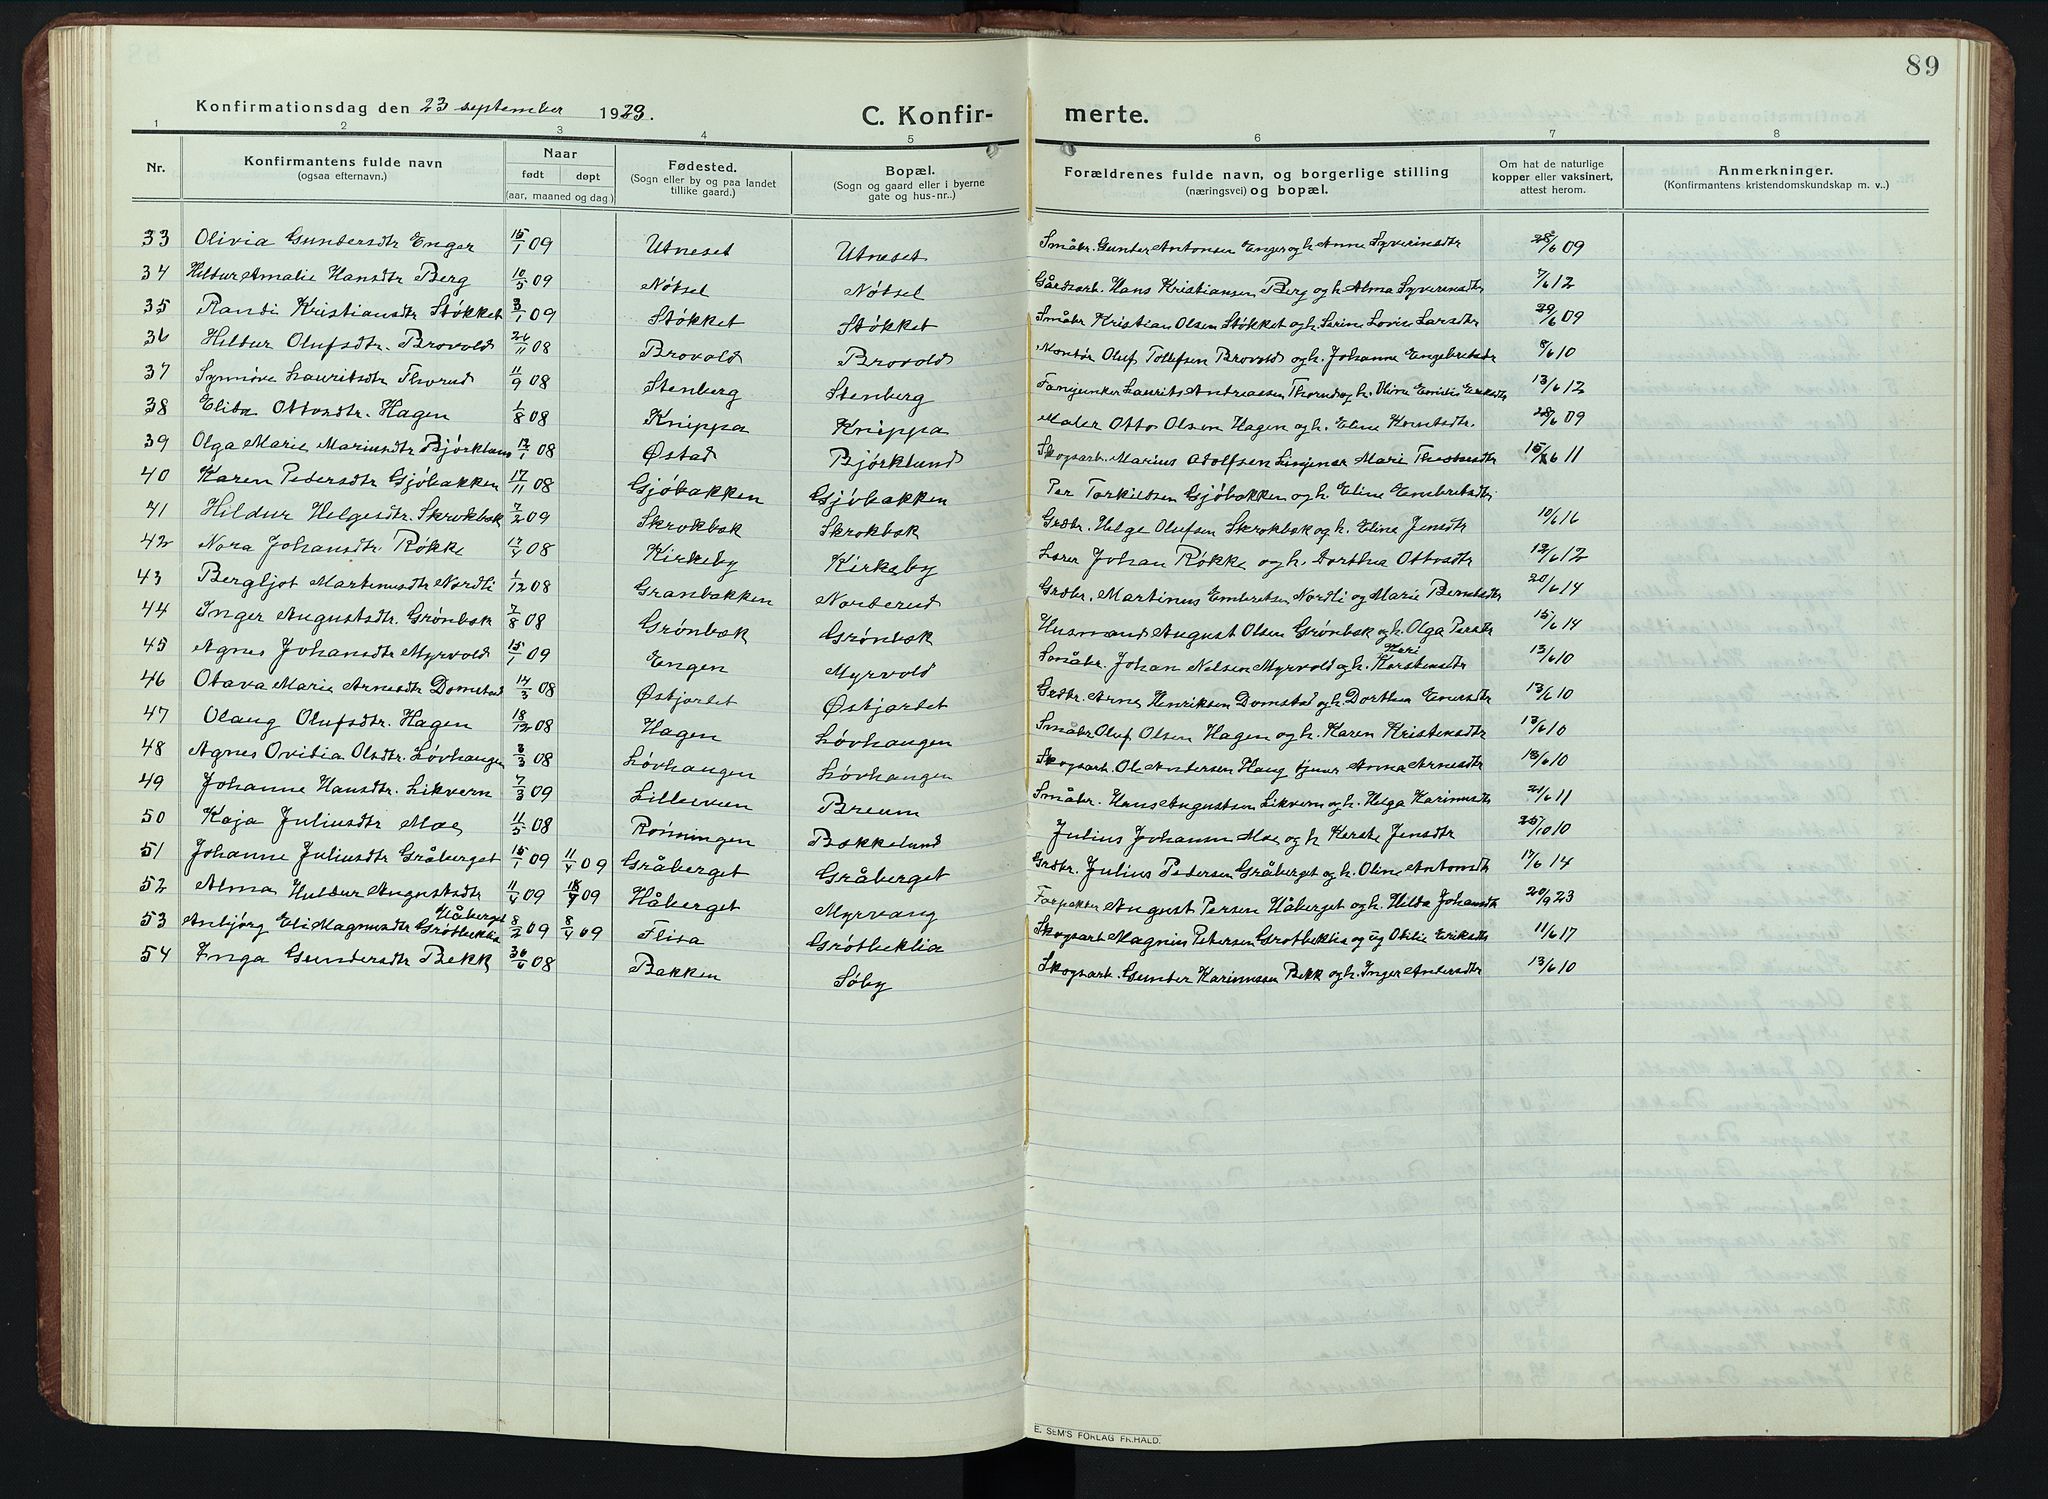 89
Konfirmationsdag den 23 september 1923.
C. Konfir- merte.
1 2 3 4 5 6 7 8
Nr.
Konfirmantens fulde navn
(ogsaa efternavn.)
Naar
født døpt
(aar, maaned og dag)
Fødested.
(Sogn eller by og paa landet
tillike gaard.)
Bopæl.
(Sogn og gaard eller i byerne
gate og hus-nr..)
Forældrenes fulde navn, og borgerlige stilling
(næringsvei) og bopæl.
Om hat de naturlige
kopper eller vaksinert,
attest herom.
Anmerkninger.
(Konfirmantens kristendomskundskap m. v..)
33 Olivia Gundersdtr Enger 15/1 09 Utneset Utneset Småbr. Gunder Antonsen Enger og h. Anne Syverinsdtr 28/6 09
34 Hildur Amalie Hansdtr Berg 10/5 09 Nötsel Nötsel Gårdsarb. Hans Kristiansen Berg og h. Alma Syverinsdtr 7/6 12
35 Randi Kristiansdtr Støkket 3/1 09 Støkket Støkket Småbr Kristian Olsen Støkket og h. Serine Lovise Larsdtr 29/6 09
36 Hildur Olufsdtr. Brovold 26/11 08 Brovold Brovold Montør Oluf Tollefsen Brovold og h. Johanne Engebretsdtr 8/6 10
37 Synnöve Lauritsdtr Thorud 11/9 08 Stenberg Stenberg Fanejunker Laurits Andreassen Thorud og h. Oline Emilie Eriksdtr 13/6 12
38 Elida Ottosdtr. Hagen 1/8 08 Knippa Knippa Maler Otto Olsen Hagen og h. Eline Knutsdtr. 28/6 09
39 Olga Marie Mariusdtr Bjørklund 12/1 08 Østad Bjørklund Skogsarb. Marius Adolfsen Marie 15/6 11
40 Karen Pedersdtr Gjöbakken 17/11 08 Gjöbakken Gjöbakken Per Torkildsen Gjöbakken og h. Eline Embretsdtr
41 Hildur Helgesdtr. Skrokbæk 7/2 09 Skrokbæk Skrokbæk Grdbr. Helge Olufsen Skrokbæk og h. Eline Jensdtr 10/6 16
42 Nora Johansdtr. Røkke 17/4 08 Kirkeby Kirkeby Lærer Johan Røkke og h. Dorthea Ottosdtr 12/6 12
43 Bergljot Martinusdtr Nordli 1/12 08 Granbakken Norberud Grdbr. Martinus Embretsen Nordli og Marie Berntsdtr 20/6 14
44 Inger Augustsdtr. Grønbæk 7/8 08 Grønbæk Grønbæk Husmand August Olsen Grønbæk og h. Olga Persdtr 15/6 14
45 Agnes Johansdtr Myrvold 15/1 09 Engen Myrvold Småbr. Johan Nelsen Myrvold og h. Kari Karstensdtr 13/6 10
46 Otava Marie Arnesdtr Domstad 14/3 08 Østjordet Østjordet Grdbr. Arne Henriksen Domstad og h. Dorthea Einersdtr 13/6 10
47 Olaug Olufsdtr. Hagen 18/12 08 Hagen Løvhaugen Småbr Oluf Olsen Hagen og h. Karen Kristensdtr 13/6 10
48 Agnes Ovidia Olsdtr. Løvhaugen 3/3 08 Løvhaugen Løvhaugen Skogsarb. Ole Andersen Haug Anna Arnesdtr 13/6 10
49 Johanne Hansdtr. Likvern 7/3 09 Lilleseven Breum Småbr. Hans Augustsen Likvern og h. Helga Karinusdtr 21/6 11
50 Kaja Juliusdtr Moe 11/5 08 Rönningen Bækkelund Julius Johansen Moe og h Kerste Jensdtr 25/10 10
51 Johanne Juliusdtr Gråberget 15/1 09 11/4 09 Gråberget Gråberget Grdbr. Julius Pedersen Gråberget og h. Oline Antonsdtr 17/6 14
52 Alma Huldur Augustsdtr Håberget 11/4 09 18/4 09 Håberget Myrvang Forpakter August Persen Håberget og h. Hilda Johansdtr 20/9 23
53 Anbjørg Eli Magnusdtr Grøtbeklia 8/2 09 8/4 09 Flisa Grøtbeklia Skogsarb Magnus Petersen Grøtbeklia og Otilie Eriksdtr 11/6 17
54 Inga Gundersdtr Bekk 30/6 08 Bakken Söby Skogsarb. Gunder Karinussen Bekk og h. Inger Andersdtr 13/6 10
E. SEM'S FORLAG FR.HALD.